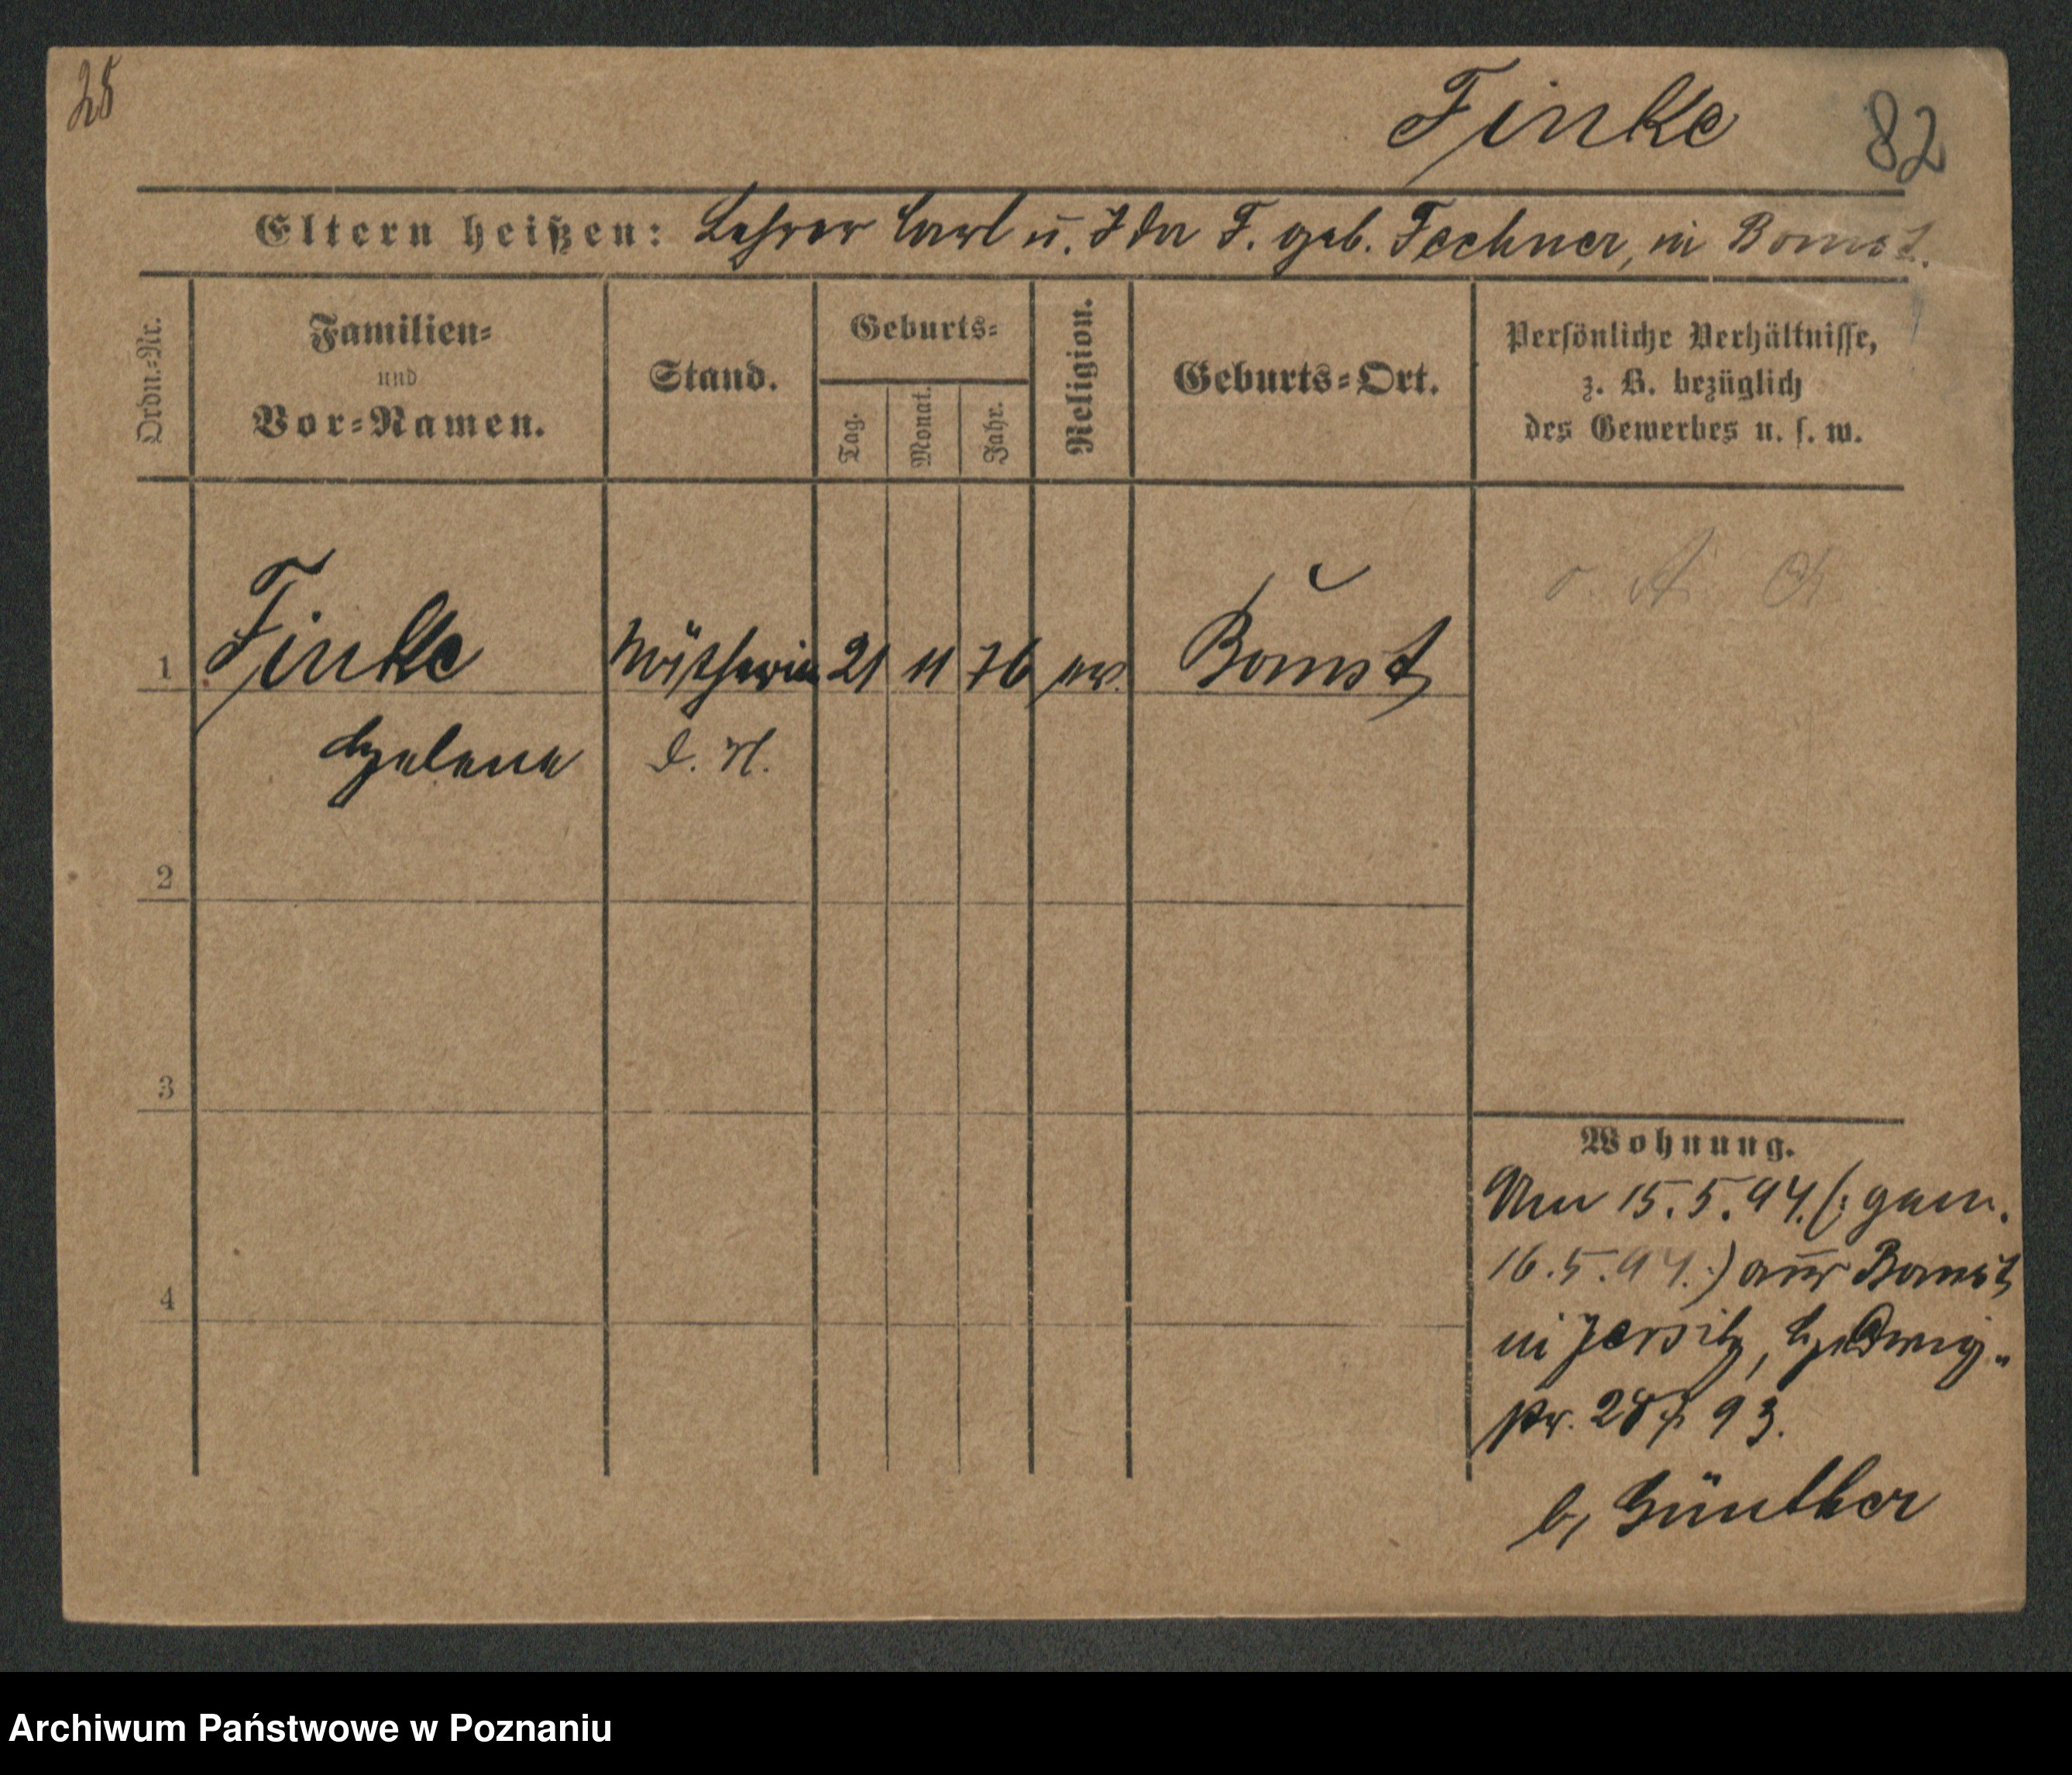 28
Finke 82
Eltern heißen: Lehrer Carl u. Ida F. geb. Fechner, in Bomst.
Ordn.-Nr.
Familien-
und
Vor-Namen.
Stand.
Geburts-
Tag.
Monat.
Jahr.
Religion.
Geburts-Ort.
Persönliche Verhältnisse,
z. B. bezüglich
des Gewerbes u. s. w.
1 Finke 21 11 76 ev. Bomst
Helene
2
3
4
Wohnung.
Am 15.5.94. (: gem.
16.5.94. :) aus Bomst
in Jersitz, Hedwig-
str. 93.
b, Günther
Archiwum Państwowe w Poznaniu